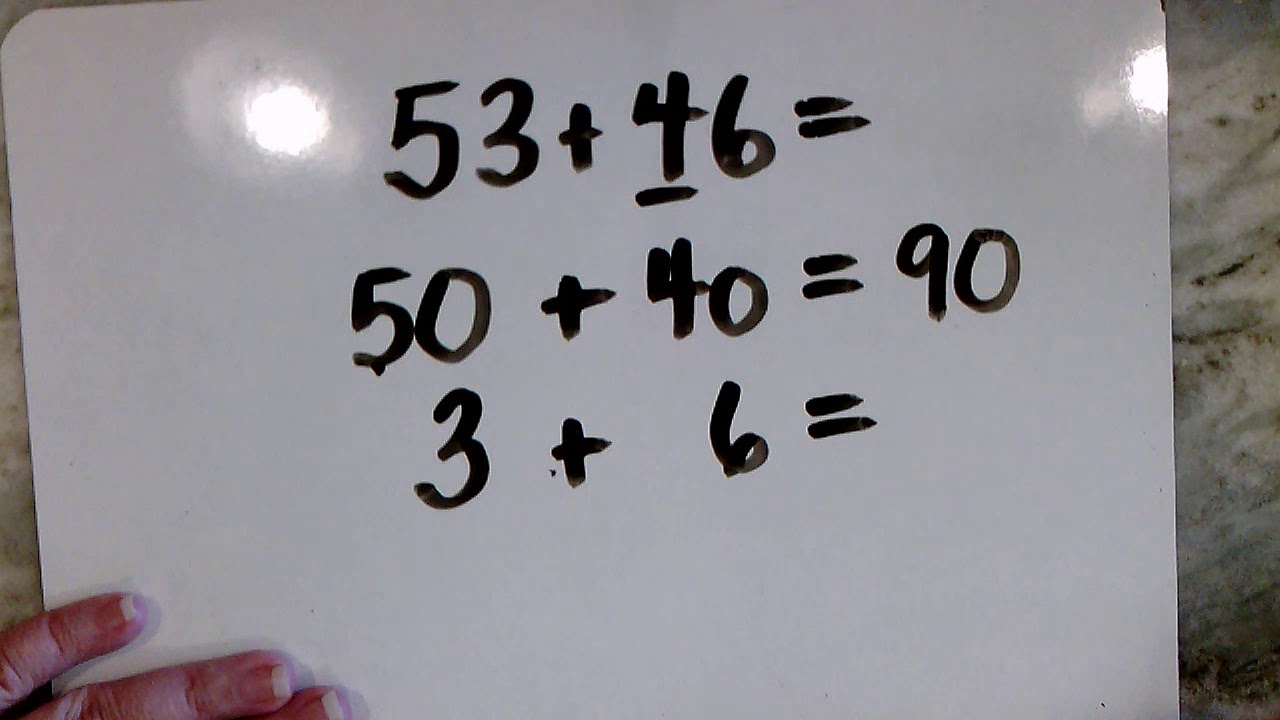 53 + 46 =
50 + 40 = 90
3 + 6 =